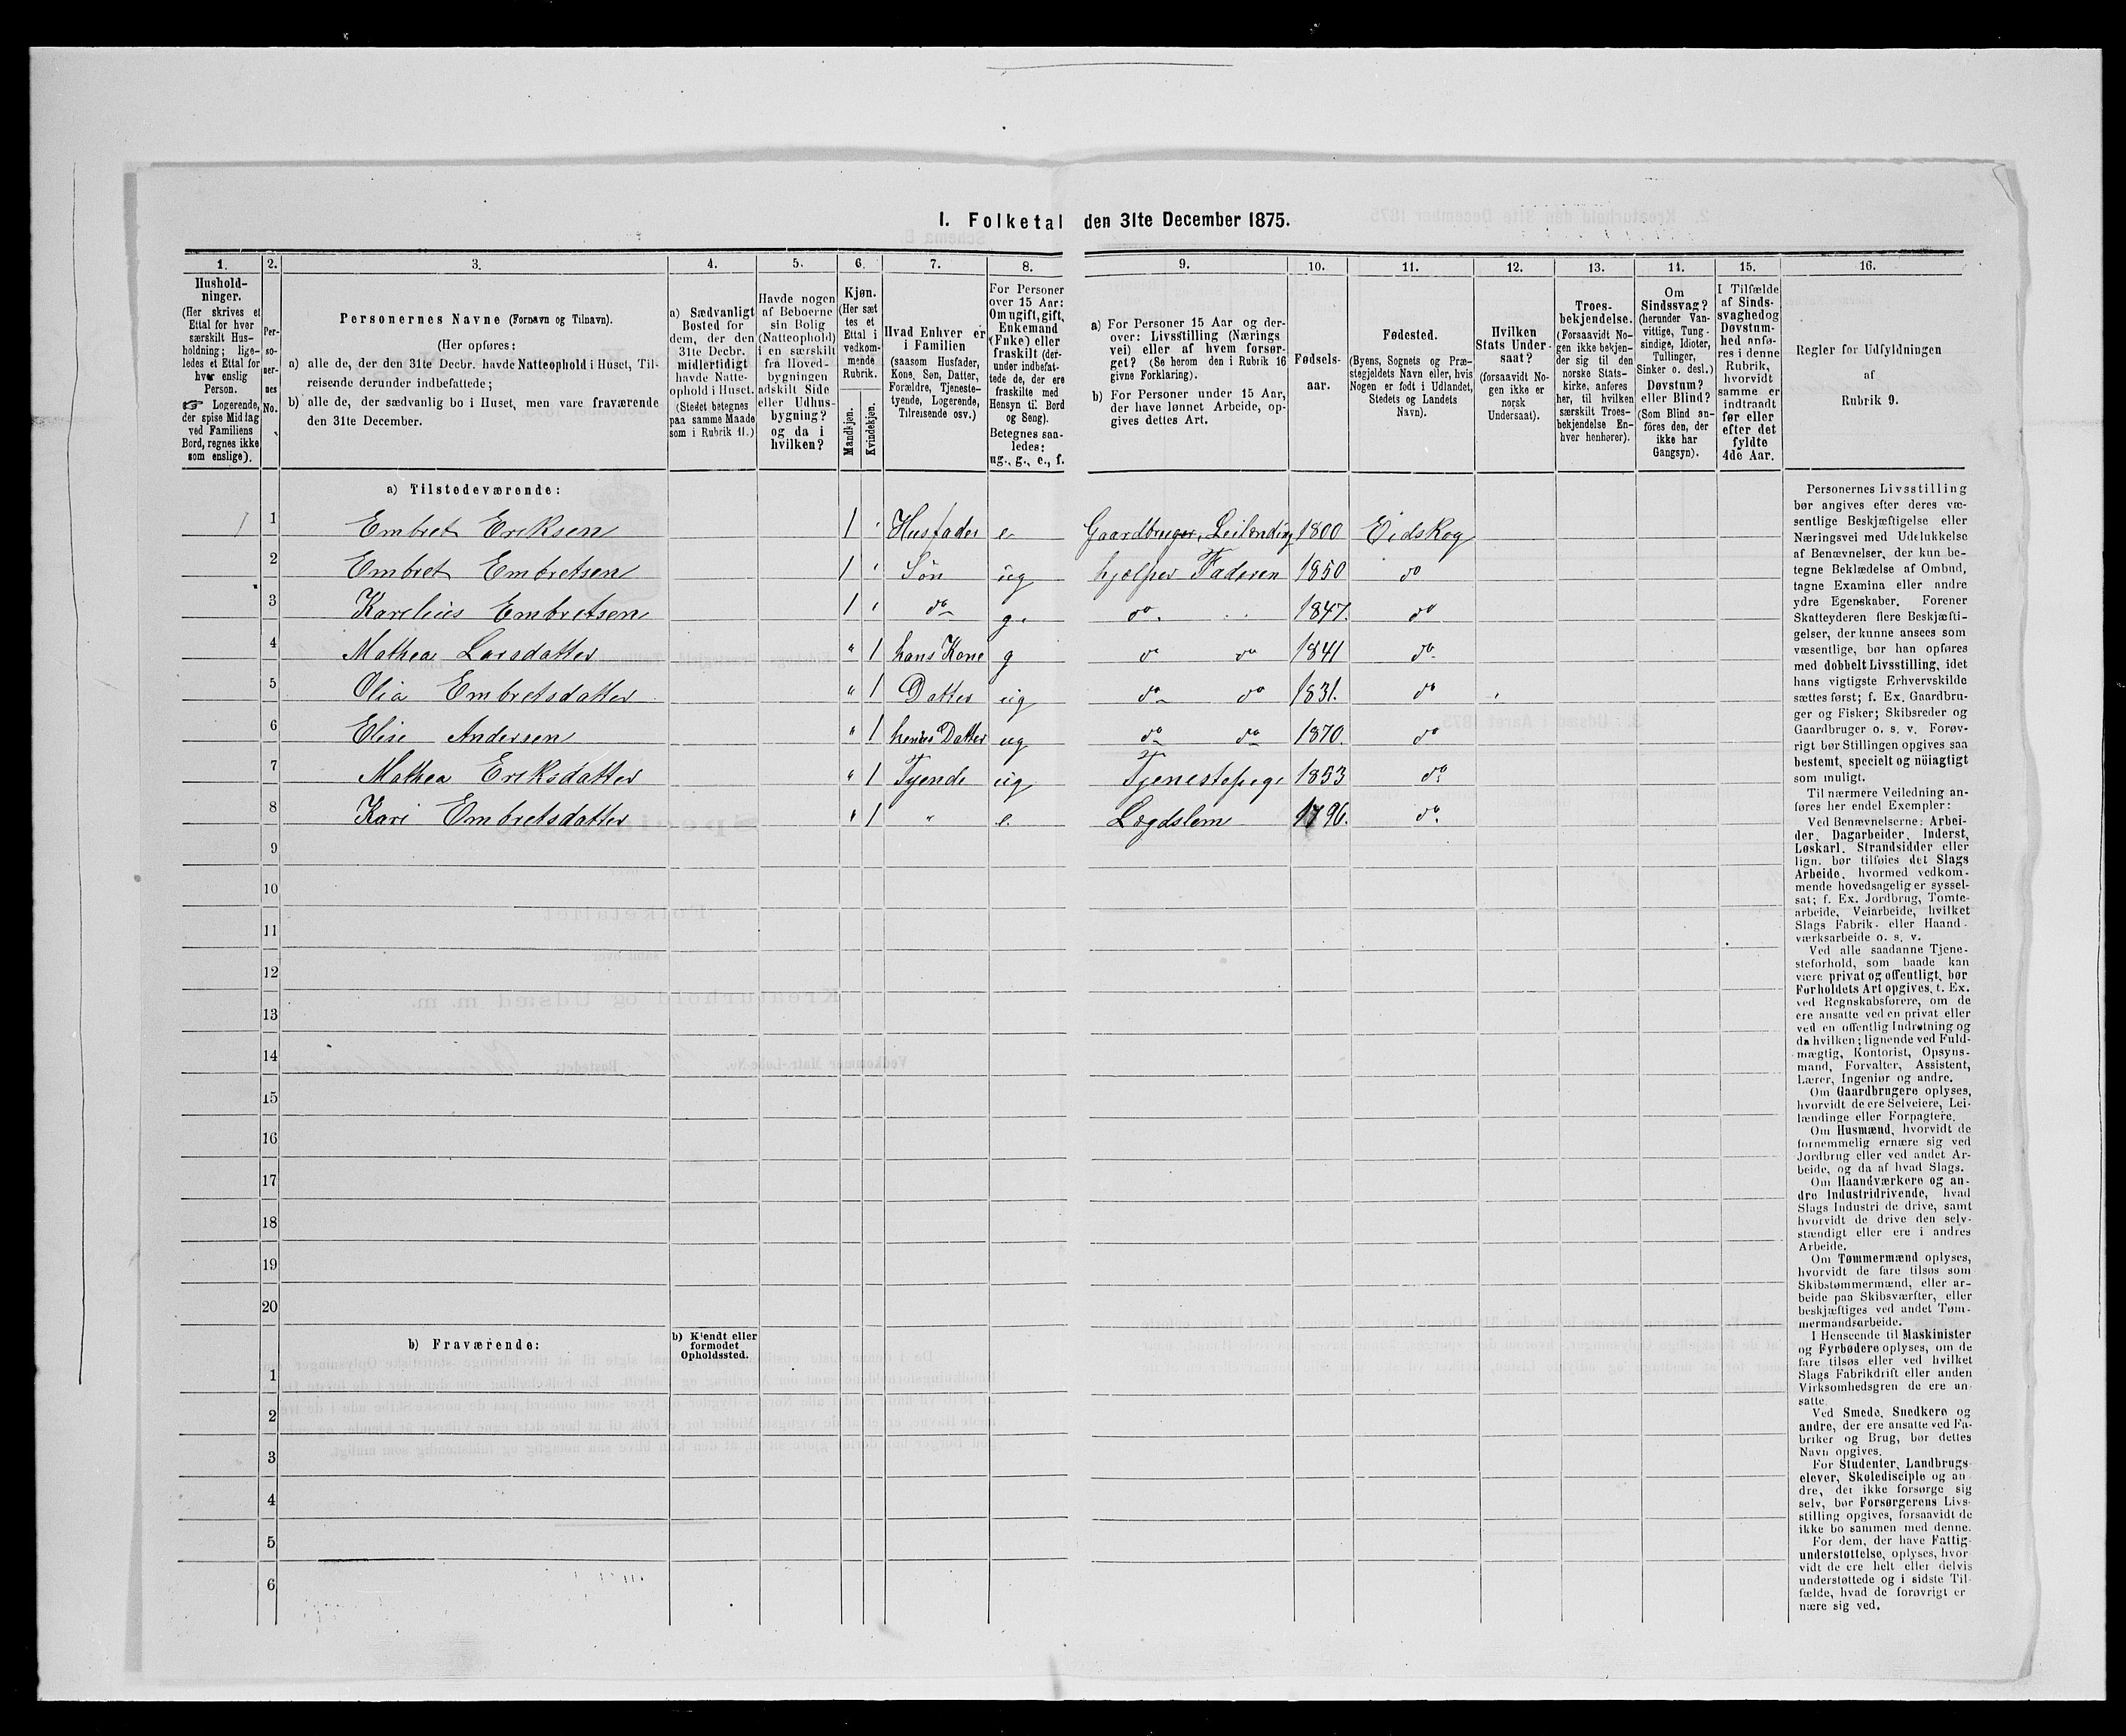 I. Folketal den 31te December 1875.
1.
2.
3.
4.
5.
6.
7.
8.
9.
10.
11.
12.
13.
14.
15.
16.
Hushold-
ninger.
(Her skrives et
Ettal for hver
særskilt Hus-
holdning; lige-
ledes et Ettal for
hver enslig
Person.
☞ Logerende,
der spise Middag
ved Familiens
Bord, regnes ikke
som enslige).
Per-
so-
ner-
nes
No.
Personernes Navne (Fornavn og Tilnavn).
(Her opføres:
a) alle de, der den 31te Decbr. havde Natteophold i Huset, Til-
reisende derunder indbefattede;
b) alle de, der sædvanlig bo i Huset, men vare fraværende
den 31te December.
a) Sædvanligt
Bosted for
dem, der den
31te Decbr.
midlertidigt
havde Natte-
ophold i Huset.
(Stedet betegnes
paa samme Maade
som i Rubrik 11.)
Havde nogen
af Beboerne
sin Bolig
(Natteophold)
i en særskilt
fra Hoved-
bygningen
adskilt Side
eller Udhus-
bygning?
og da i
hvilken?
Kjøn.
(Her sæt
tes et
Ettal i
vedkom-
mende
Rubrik.
Mandkjøn.
Kvindekjøn.
Hvad Enhver er
i Familien
(saasom Husfader,
Kone, Søn, Datter,
Forældre, Tjeneste-
tyende, Logerende,
Tilreisende osv.)
For Personer
over 15 Aar:
Om ugift, gift,
Enkemand
(Enke) eller
fraskilt (der-
under indbefat-
tede de, der ere
fraskilte med
Hensyn til Bord
og Seng).
Betegnes saa-
ledes:
ug., g., e., f.
a) For Personer 15 Aar og der-
over: Livsstilling (Nærings
vei) eller af hvem forsør-
get? (Se herom den i Rubrik 16
givne Forklaring).
b) For Personer under 15 Aar,
der have lønnet Arbeide, op-
gives dettes Art.
Fødsels-
aar.
Fødested.
(Byens, Sognets og Præ-
stegjeldets Navn eller, hvis
Nogen er født i Udlandet,
Stedets og Landets
Navn).
Hvilken
Stats Under-
saat?
(forsaavidt No-
gen ikke er
norsk
Undersaat).
Troes-
bekjendelse.
(Forsaavidt No-
gen ikke bekjen-
der sig til den
norske Stats-
kirke, anføres
her, til hvilken
særskilt Troes-
bekjendelse En-
hver henhører).
Om
Sindssvag?
(herunder Van-
vittige, Tung-
sindige, Idioter,
Tullinger,
Sinker o. desl.)
Døvstum?
eller Blind?
(Som Blind an-
föres den, der
ikke har
Gangsyn).
I Tilfælde
af Sinds-
svaghed og
Døvstum-
hed anfø-
res i denne
Rubrik,
hvorvidt
samme er
indtraadt
før eller
efter det
fyldte
4de Aar.
Regler for Udfyldningen
af
Rubrik 9.
a) Tilstedeværende:
1 1 Embret Eriksen 1 Husfader e Gaardbruger, Leilending 1800 Eidskog
2 Embret Embretsen 1 Søn ug hjælper Faderen 1850 do
3 Karelius Embretsen 1 do g. do 1847. do
4 Mathea Larsdatter " 1 hans Kone g do do 1841 do
5 Olia Embretsdatter " 1 Datter ug do do 1831. do
6 Elise Andersen " 1 hendes Datter ug do do 1870. do
7 Mathea Eriksdatter " 1 Tyende ug Tjenestepige 1853 do
8 Kari Embretsdatter " 1 " e. Lægdslem 1796. do
9
10
11
12
13
14
15
16
17
18
19
20
b) Fraværende:
b) Kjendt eller
formodet
Opholdssted.
1
2
3
4
5
6
Personernes Livsstilling
bør angives efter deres væ-
sentlige Beskjæftigelse eller
Næringsvei med Udelukkelse
af Benævnelser, der kun be-
tegne Beklædelse af Ombud,
tagne Examina eller andre
ydre Egenskaber. Forener
Skatteyderen flere Beskjæfti-
gelser, der kunne ansees som
væsentlige, bør han opføres
med dobbelt Livsstilling, idet
hans vigtigste Erhvervskilde
sættes først; f. Ex. Gaardbru-
ger og Fisker; Skibsreder og
Gaardbruger o. s. v. Forøv-
rigt bør Stillingen opgives saa
bestemt, specielt og nöiagtigt
som muligt.
Til nærmere Veiledning an-
føres her endel Exempler:
Ved Benævnelserne: Arbei-
der, Dagarbeider, Inderst,
Løskarl, Strandsidder eller
lign. bør tilføies det Slags
Arbeide, hvormed vedkom-
mende hovedsagelig er syssel-
sat; f. Ex. Jordbrug, Tomte-
arbeide, Veiarbeide, hvilket
Slags Fabrik- eller Haand-
værksarbeide o. s. v.
Ved alle saadanne Tjene-
steforhold, som baade kan
være privat og offentligt, bør
Forholdets Art opgives, t. Ex.
ved Regnskabsførere, om de
ere ansatte ved en privat eller
ved en offentlig Indretning og
da hvilken; lignende ved Fuld-
mægtig, Kontorist, Opsyns-
mand, Forvalter, Assistent,
Lærer, Ingeniør og andre.
Om Gaardbrugere oplyses,
hvorvidt de ere Selveiere, Lei-
lændinge eller Forpagtere.
Om Husmænd, hvorvidt de
fornemmelig ernære sig ved
Jordbrug eller ved andet Ar-
beide, og da af hvad Slags.
Om Haandværkere og an-
dre Industridrivende, hvad
Slags Industri de drive, samt
hvorvidt de drive den selv-
stændigt eller ere i andres
Arbeide.
Om Tømmermænd oplyses,
hvorvidt de fare tilsøs som
Skibstømmermænd, eller ar-
beide paa Skibsværfter, eller
beskjæftiges ved andet Tøm-
mermandsarbeide.
I Henseende til Maskinister
og Fyrbødere oplyses, om de
fare tilsøs eller ved hvilket
Slags Fabrikdrift eller anden
Virksomhedsgren de ere an-
satte.
Ved Smede, Snedkere og
andre, der ere ansatte ved Fa-
briker og Brug, bør dettes
Navn opgives.
For Studenter, Landbrugs-
elever, Skoledisciple og an-
dre, der ikke forsørge sig
selv, bør Forsørgerens Livs-
stilling opgives, forsaavidt de
ikke bo sammen med denne.
For dem, der have Fattig-
understøttelse, oplyses, hvor-
vidt de ere helt eller delvis
understøttede og i sidste Til-
fælde, hvad de forøvrigt er-
nære sig ved.